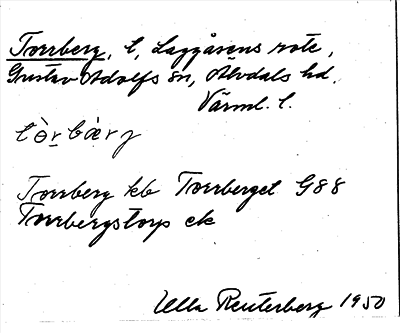 Torrberg, l, Laggåsens rote,
Gustav Adolfs sn, Älvdals hd,
Värml. l.
tò̱rbæ̀rj
Torrberg kb Torrberget G88
Torrbergstorp ek
Ulla Reuterberg 1950